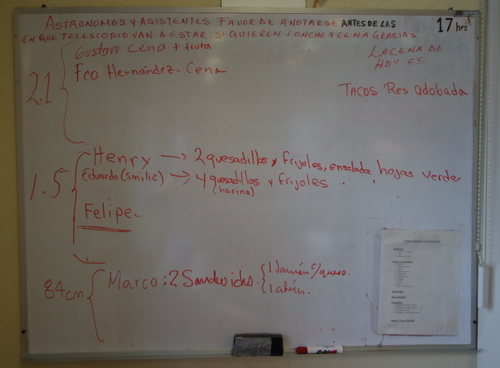 ASTRONOMOS Y ASISTENTES FAVOR DE ANOTARSE ANTES DE LAS 17 hrs
EN QUE TELESCOPIO VAN A ESTAR, SI QUIEREN LONCHE Y CENA GRACIAS
LA CENA DE
HOY ES
TACOS Res adobada
2.1
Gustavo Cena + fruta
Fco Hernández - Cena
1.5
Henry → 2 quesadillas y frijoles, ensalada hojas verdes
Eduardo (Smilie) → 4 quesadillas y frijoles
(harina)
Felipe-
84cm
Marco: 2 Sandwichs
1 Jamón c/queso.
1 atún.